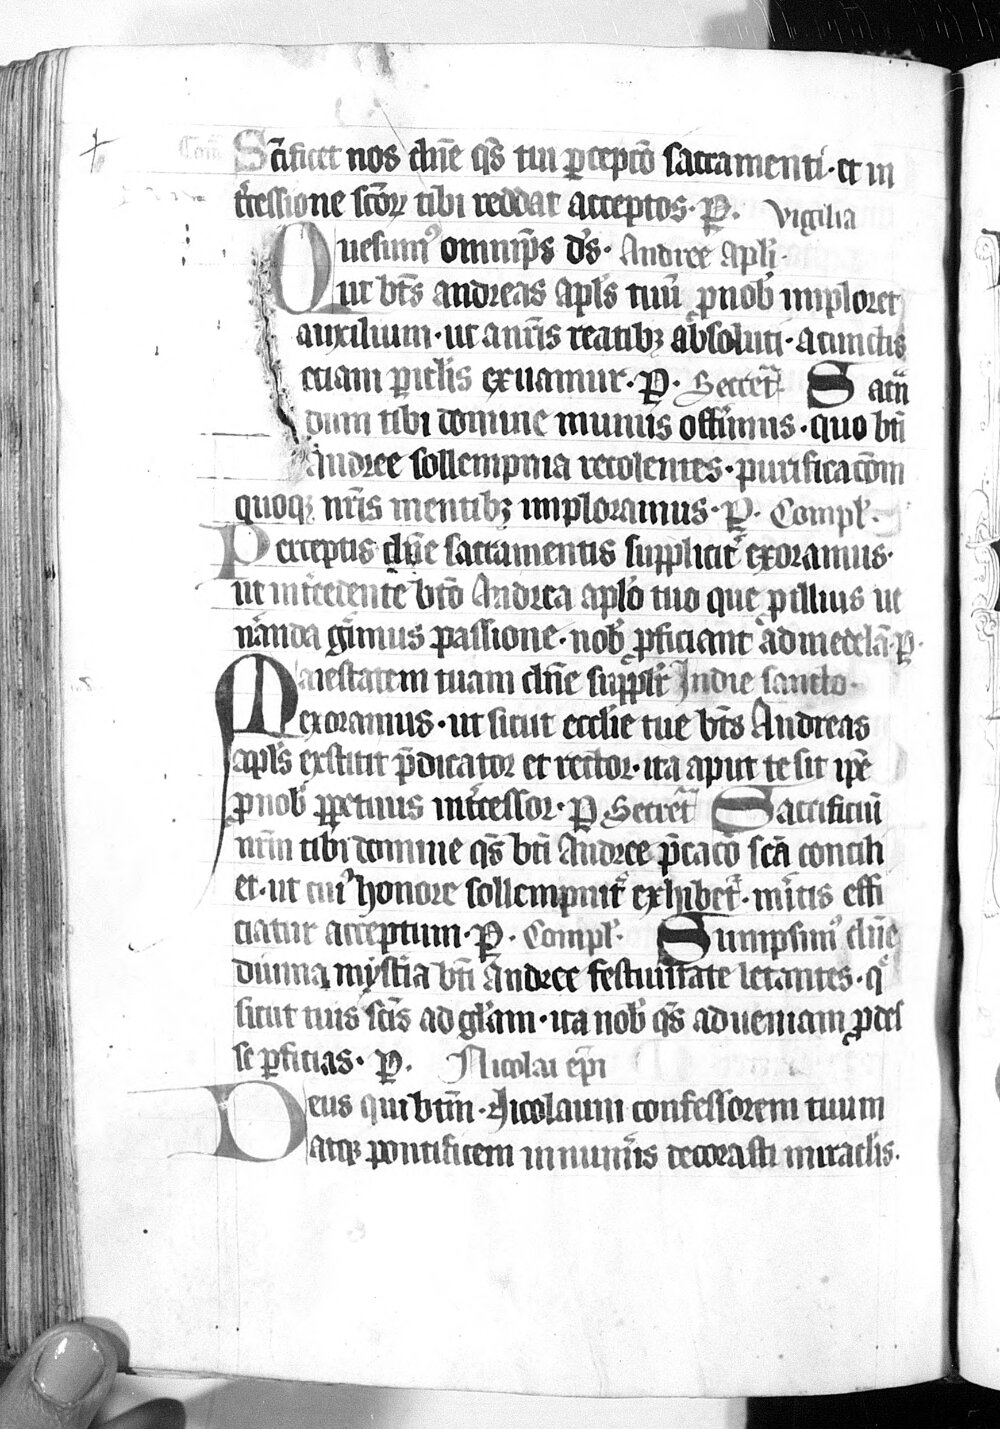 Com̄
Sc̄ificet nos dn̄e qs̄ tui ꝑcepcō sacramenti · et in
t̄cessione sc̄oꝝ tibi reddat acceptos · P̲ . vigilia
Quesumꝰ omnip̄s ds̄ · Andree apl̄i ·
ut bt̄s andreas apl̄s tuū pro nob̄ imploret
auxilium · ut a nr̄is reatibꝫ absoluti · a cunctis
eciam ꝑicl̄is exuamur · P̲ · Secret̄ Sacrī
dum tibi domine munus offerimus · quo bt̄i
Andree sollempnia recolentes · purificacōm
quoqꝫ nr̄is mentibꝫ imploramus · P̲ . Compl̄ .
Perceptis dn̄e sacramentis suppliciter exoramus ·
ut int̄cedente bt̄o Andrea apl̄o tuo que pro illius ue
neranda gerimus passione · nob̄ proficiant ad medelā · P̲ ·
Maiestatem tuam dn̄e suppl̄r In die sancto ·
exoramus · ut sicut eccl̄ie tue bt̄s Andreas
apl̄s exstitit p̄dicator et rector · ita aput te sit ip̄e
pro nob̄ ꝑpetuus int̄cessor · P̲ Secret̄ Sacrificiū
nr̄m tibi domine qs̄ bt̄i Andree p̄cacō sc̄a concili
et · ut cuiꝰ honore sollempnit̄ exhibet̄ · meritis effi
ciatur acceptum · P̲ · Compl̄ · Sumpsimꝰ dn̄e
diuina mysteria bt̄i Andree festiuitate letantes · q̄
sicut tuis sc̄is ad gl̄iam · ita nob̄ qs̄ ad ueniam prodes
se ꝑficias · P̲ . Nicolai ep̄i
Deus qui bt̄m · Nicolaum confessorem tuum
atqꝫ pontificem innumeris decorasti miraclis .